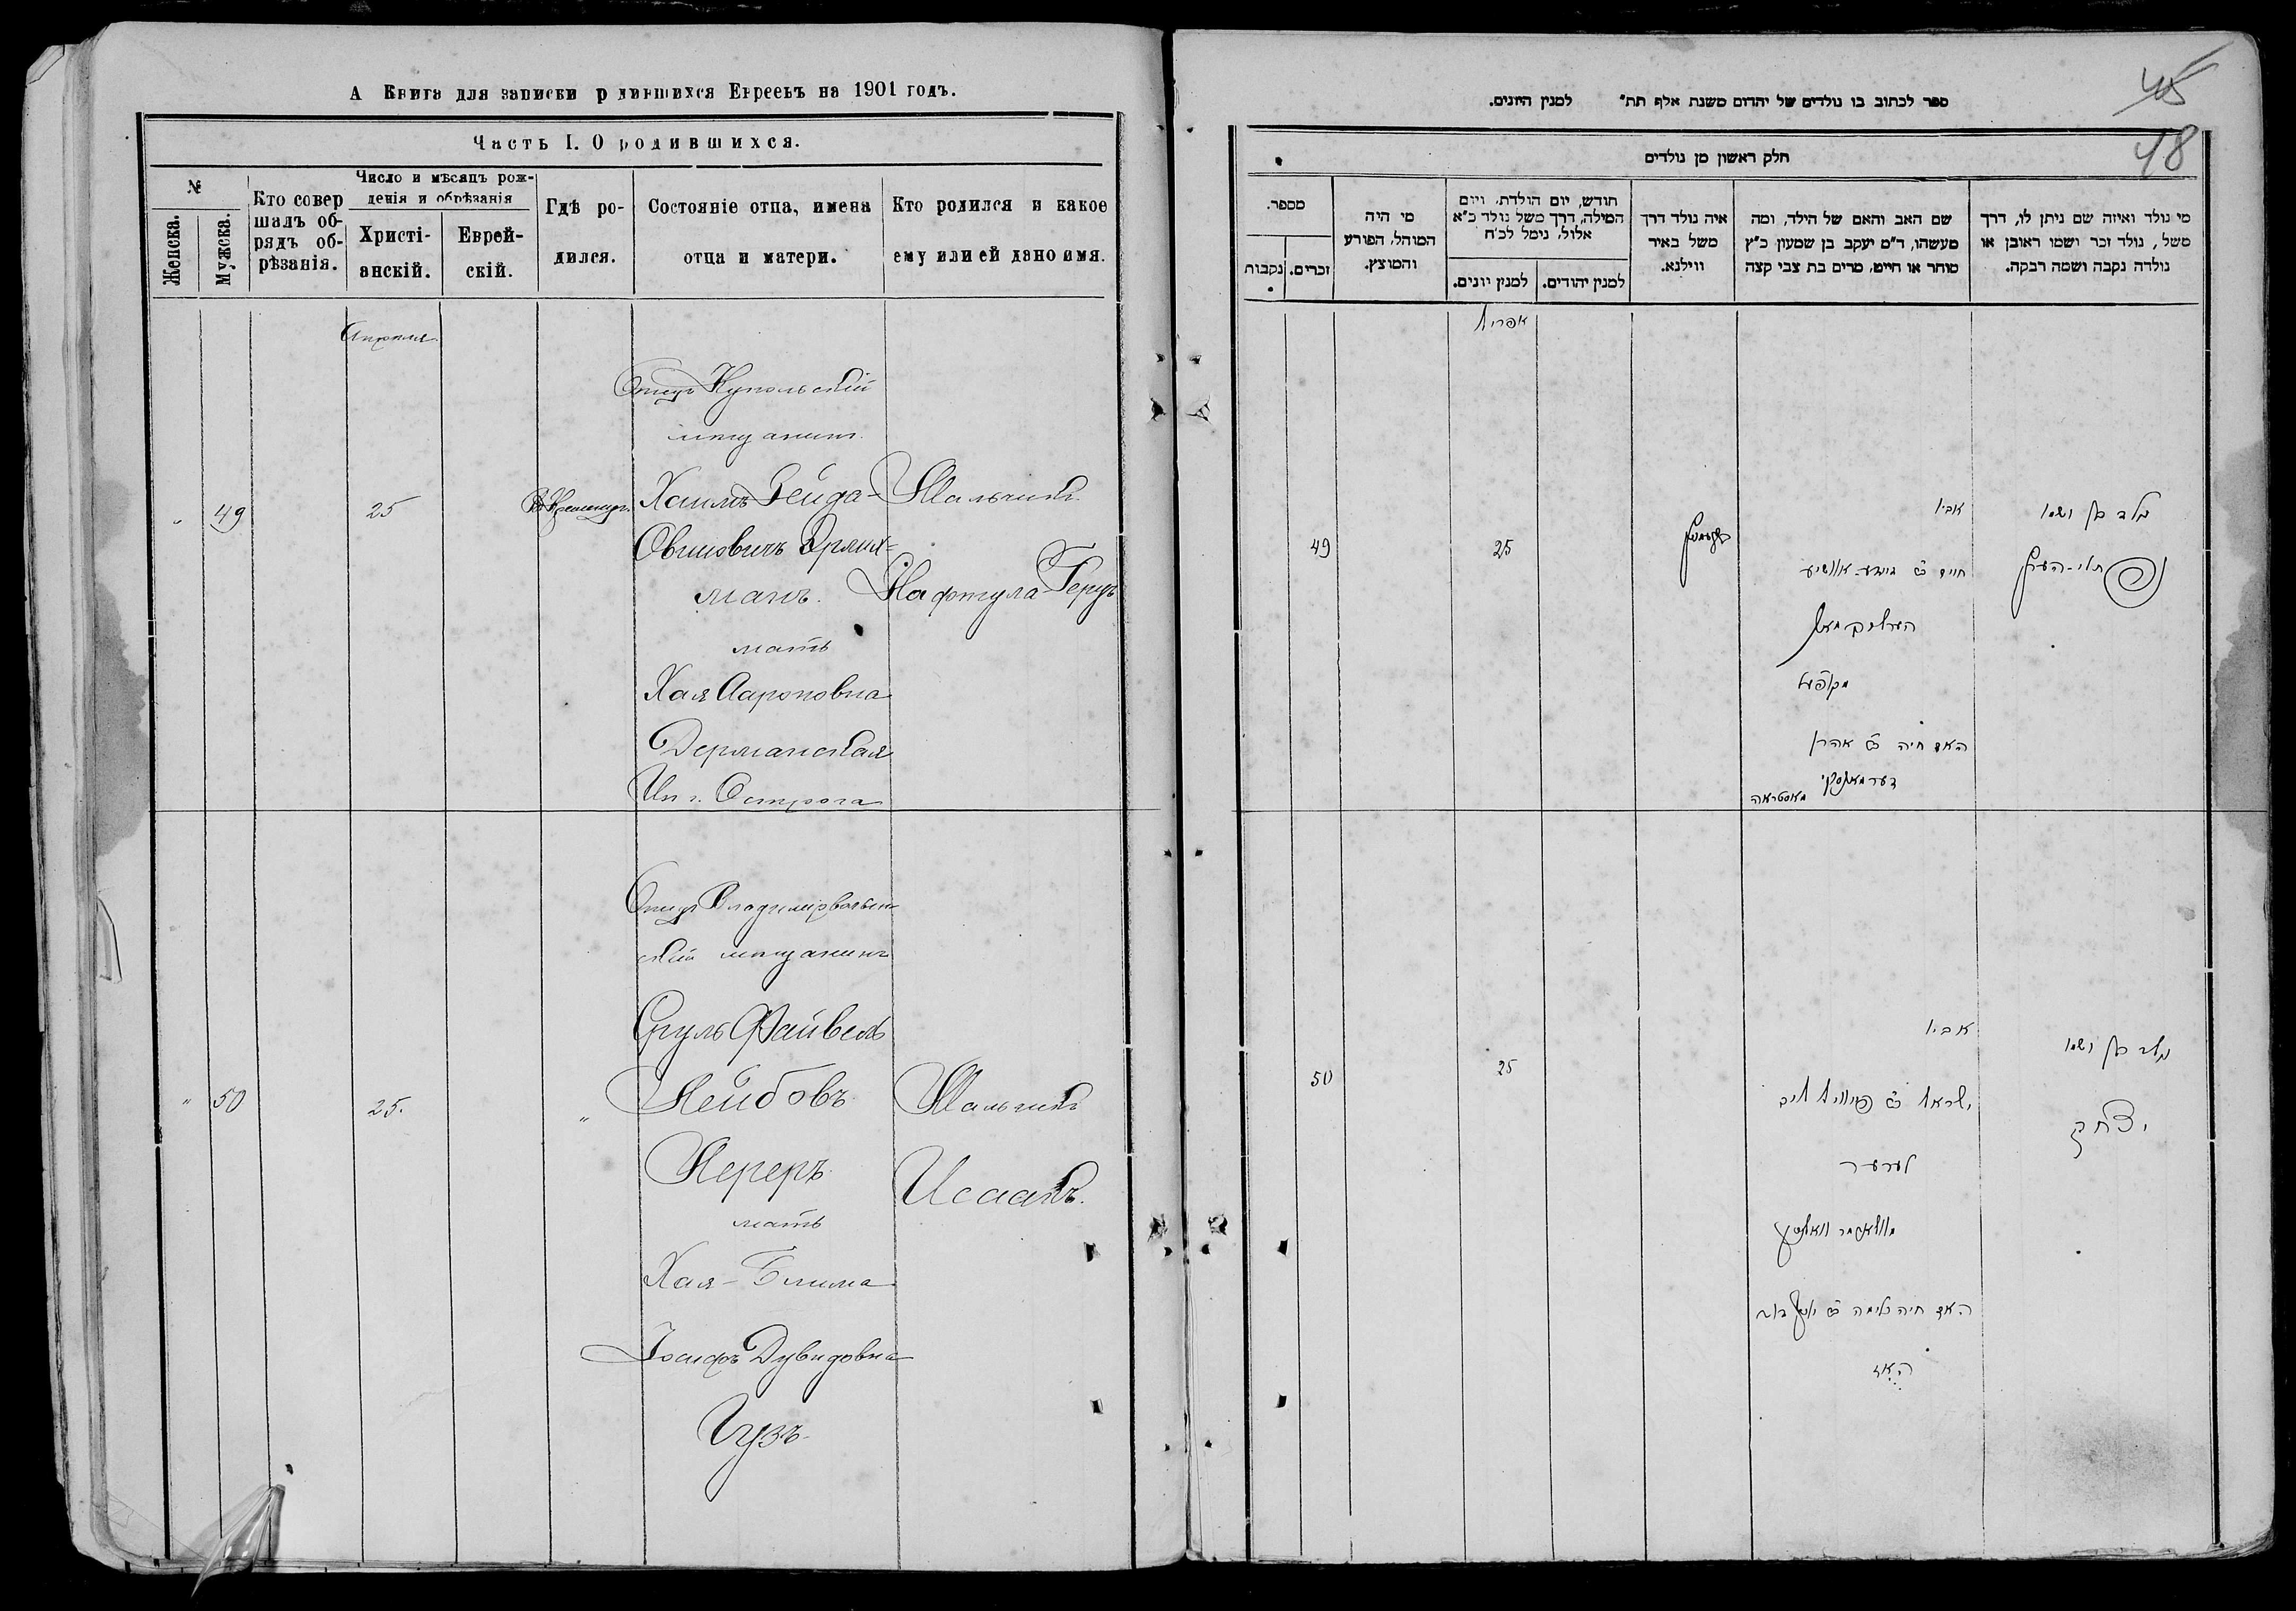 А Книга для записки р дившихся Евреевъ на 1901 годъ.
Часть I. О родившихся.
№
Женска.
Мужска.
Кто совер
шалъ об-
рядъ об-
рѣзанія.
Число и мѣсяцъ рож-
денія и обрѣзанія
Христі-
анскій.
Еврей-
скій.
Гдѣ ро-
дился.
Состояніе отца, имена
отца и матери.
Кто родился и какое
ему или ей дано имя.
Апреля
Отецъ Купольскій
мещанинъ
„ 49 25
Хаимъ Гейда-
Овшіовичъ
манъ.
мать
Хая Аароновна
Дерманская
Из г. Острога
Мальчикъ
Нафтула-Герцъ
Отецъ Владимірволын-
скій мещанинъ
Сруль Файвель
Лейбовъ
Лереръ
мать
Хая-Блима
Іосифъ Дувидовна
Гузъ
„ 50 25. „
Мальчикъ
Исаакъ.
45
48
ספר לכתוב בו נולדים של יהדום משנת אלף תת״ למנין היונים.
חלק ראשון מן נולדים
מספר.
זכרים.
נקבות
מי היה
המוהל, הפורע
והמוצץ.
חודש, יום הולדת, ויום
המילה, דרך משל נולד כ״א
אלול, נימל לכ״ח
למנין יונים.
למנין יהודים.
איה נולד דרך
משל באיר
ווילנא.
שם האב והאם של הילד, ומה
מעשהו, ד״מ יעקב בן שמעון כ״ץ
סוחר או חייט, מרים בת צבי קצה
מי נולד ואיזה שם ניתן לו, דרך
משל, נולד זכר ושמו ראובן או
נולדה נקבה ושמה רבקה.
אפריל
49 25
אביו
האם חיה בת אהרן
דערמאנסקי
מאסטראה
נולד בן ושמו
50 25
אביו
ישראל
לערער
האם חיה בלימה
נולד בן ושמו
יצחק